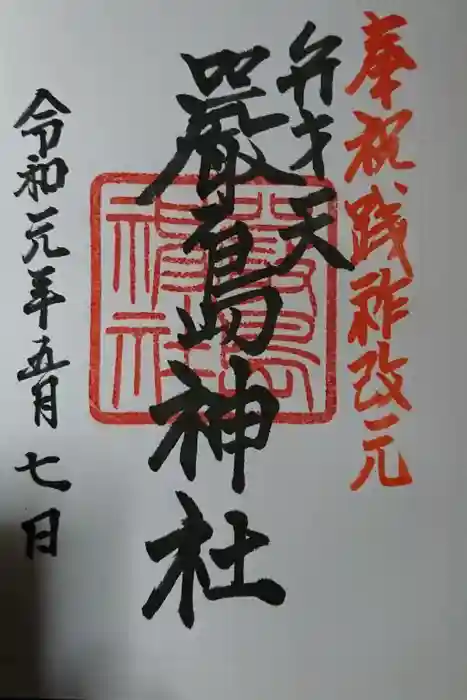 奉祝践祚改元
弁才天
嚴島神社
令和元年五月七日